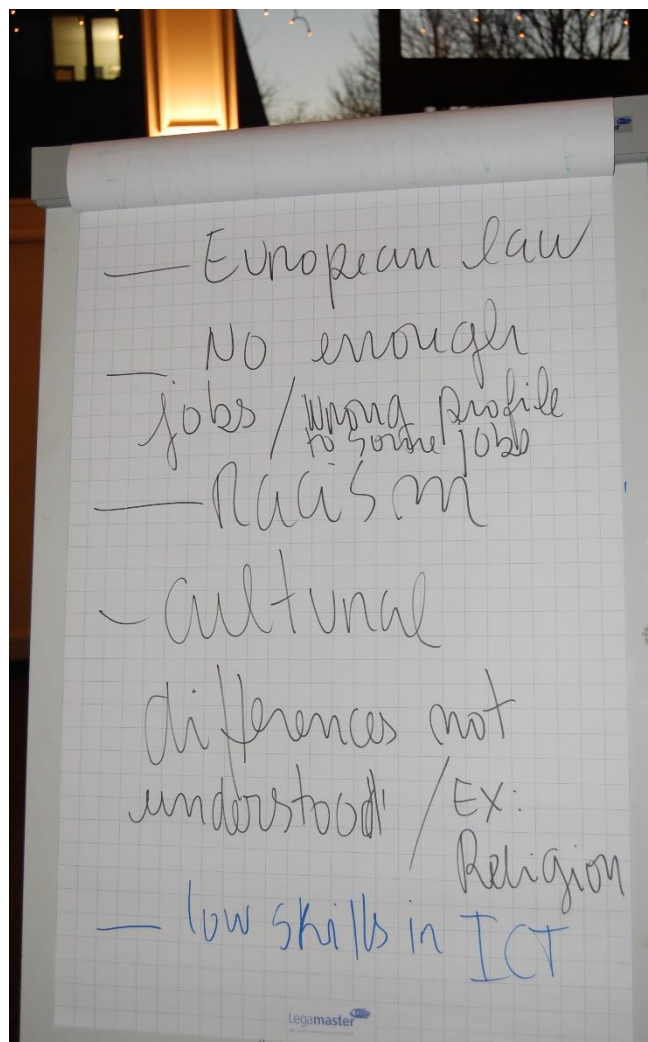 — European law
— No enough
jobs / wrong profile
to some jobs
— Racism
- cultural
differences not
understood / EX:
Religion
— low skills in ICT
Legamaster